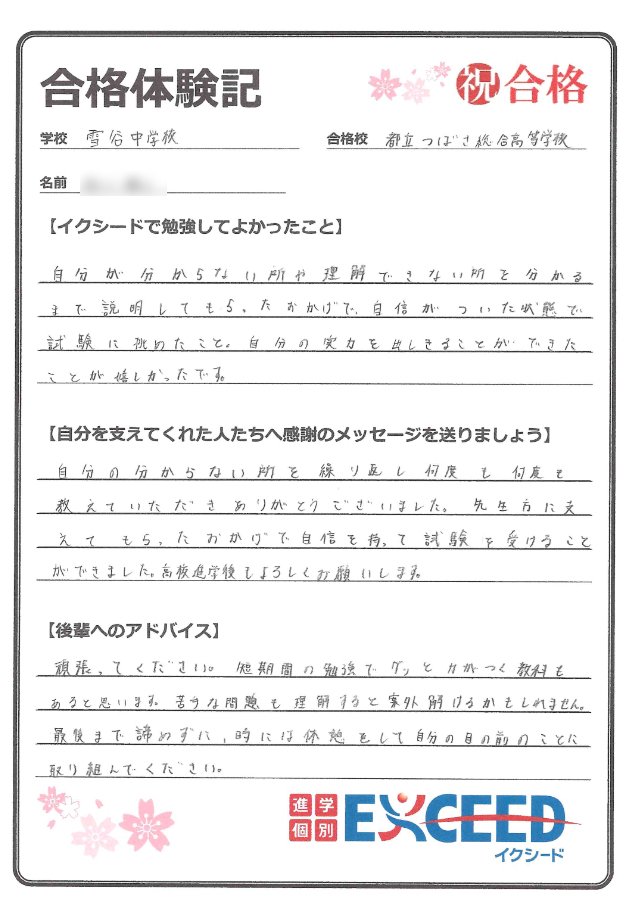 合格体験記
祝 合格
学校 雪谷中学校
合格校 都立つばさ総合高等学校
名前
【イクシードで勉強してよかったこと】
自分が分からない所や理解できない所を分かる
まで説明してもらったおかげで、自信がついた状態で
試験に挑めたこと。自分の実力を出しきることができた
ことが嬉しかったです。
【自分を支えてくれた人たちへ感謝のメッセージを送りましょう】
自分の分からない所を繰り返し何度も何度も
教えていただきありがとうございました。先生方に支
えてもらったおかげで自信を持って試験を受けること
ができました。高校進学後もよろしくお願いします。
【後輩へのアドバイス】
頑張ってください。短期間の勉強でグッと力がつく教科も
あると思います。苦手な問題も理解すると案外解けるかもしれません。
最後まで諦めずに、時には休憩をして自分の目の前のことに
取り組んでください。
進学個別 EXCEED
イクシード